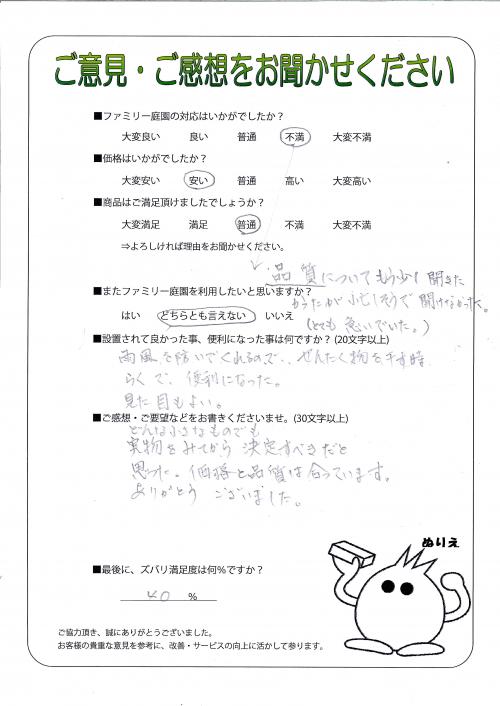 ご意見・ご感想をお聞かせください
■ファミリー庭園の対応はいかがでしたか？
大変良い 良い 普通 不満 大変不満
■価格はいかがでしたか？
大変安い 安い 普通 高い 大変高い
■商品はご満足頂けましたでしょうか？
大変満足 満足 普通 不満 大変不満
⇒よろしければ理由をお聞かせください。
品質についてもう少し聞きた
かったが忙しそうで聞けなかった。
(とても急いでいた。)
■またファミリー庭園を利用したいと思いますか？
はい どちらとも言えない いいえ
■設置されて良かった事、便利になった事は何ですか？(20文字以上)
雨風を防いでくれるので、ぜんたく物を干す時、
らくで、便利になった。
見た目もよい。
■ご感想・ご要望などをお書きくださいませ。(30文字以上)
どんな小さなものでも
実物をみてから決定すべきだと
思った。価格と品質は合っています。
ありがとうございました。
ぬりえ
■最後に、ズバリ満足度は何％ですか？
40 ％
ご協力頂き、誠にありがとうございました。
お客様の貴重な意見を参考に、改善・サービスの向上に活かして参ります。